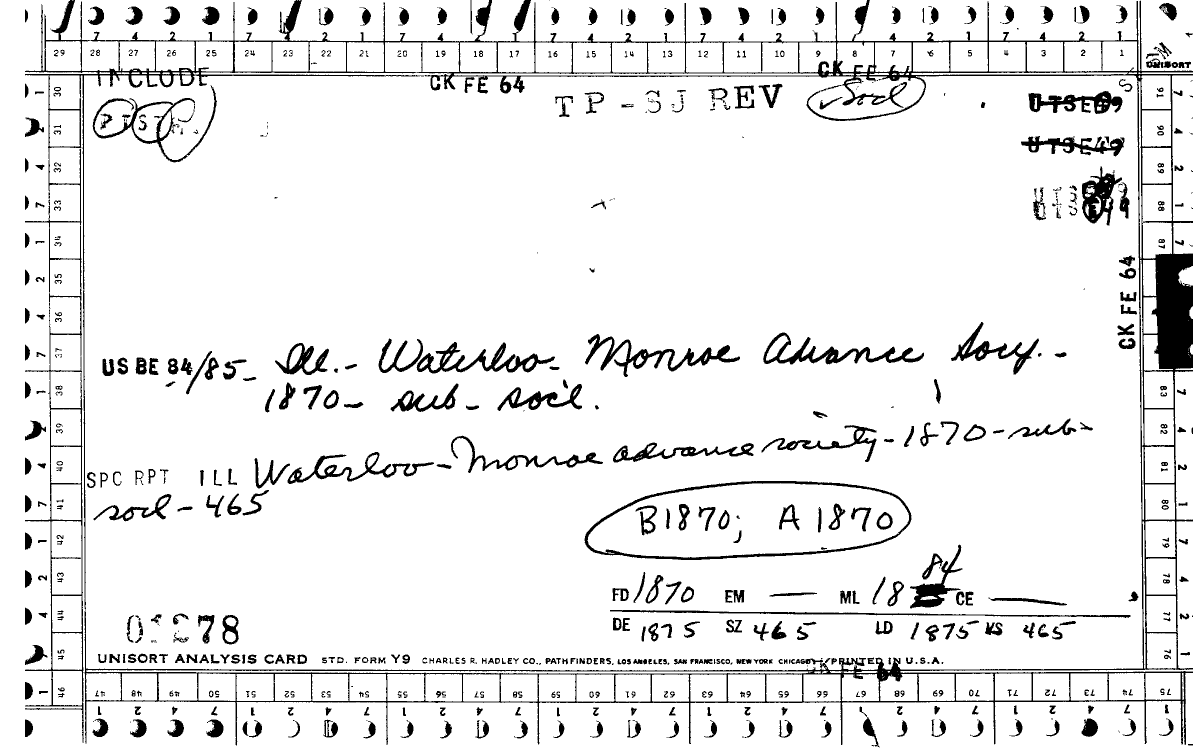 29 28 27 26 25 24 23 22 21 20 19 18 17 16 15 14 13 12 11 10 9 8 7 6 5 4 3 2 1
UNISORT
INCLUDE
CK FE 64
CK FE 64
TP-SJ REV
Socl
UTSE49
UTSE49
CK FE 64
US BE 84/85 - Ill. - Waterloo - Monroe Advance Socy. -
1870 - sub - soc'l.
SPC RPT ILL Waterloo - Monroe advance society - 1870 - sub -
socl - 465
B1870; A1870
84
FD 1870 EM — ML 18 CE —
DE 1875 SZ 465 LD 1875 VS 465
01278
UNISORT ANALYSIS CARD STD. FORM Y9 CHARLES R. HADLEY CO., PATHFINDERS, LOS ANGELES, SAN FRANCISCO, NEW YORK CHICAGO PRINTED IN U.S.A.
CK FE 64
47 48 49 50 51 52 53 54 55 56 57 58 59 60 61 62 63 64 65 66 67 68 69 70 71 72 73 74 75